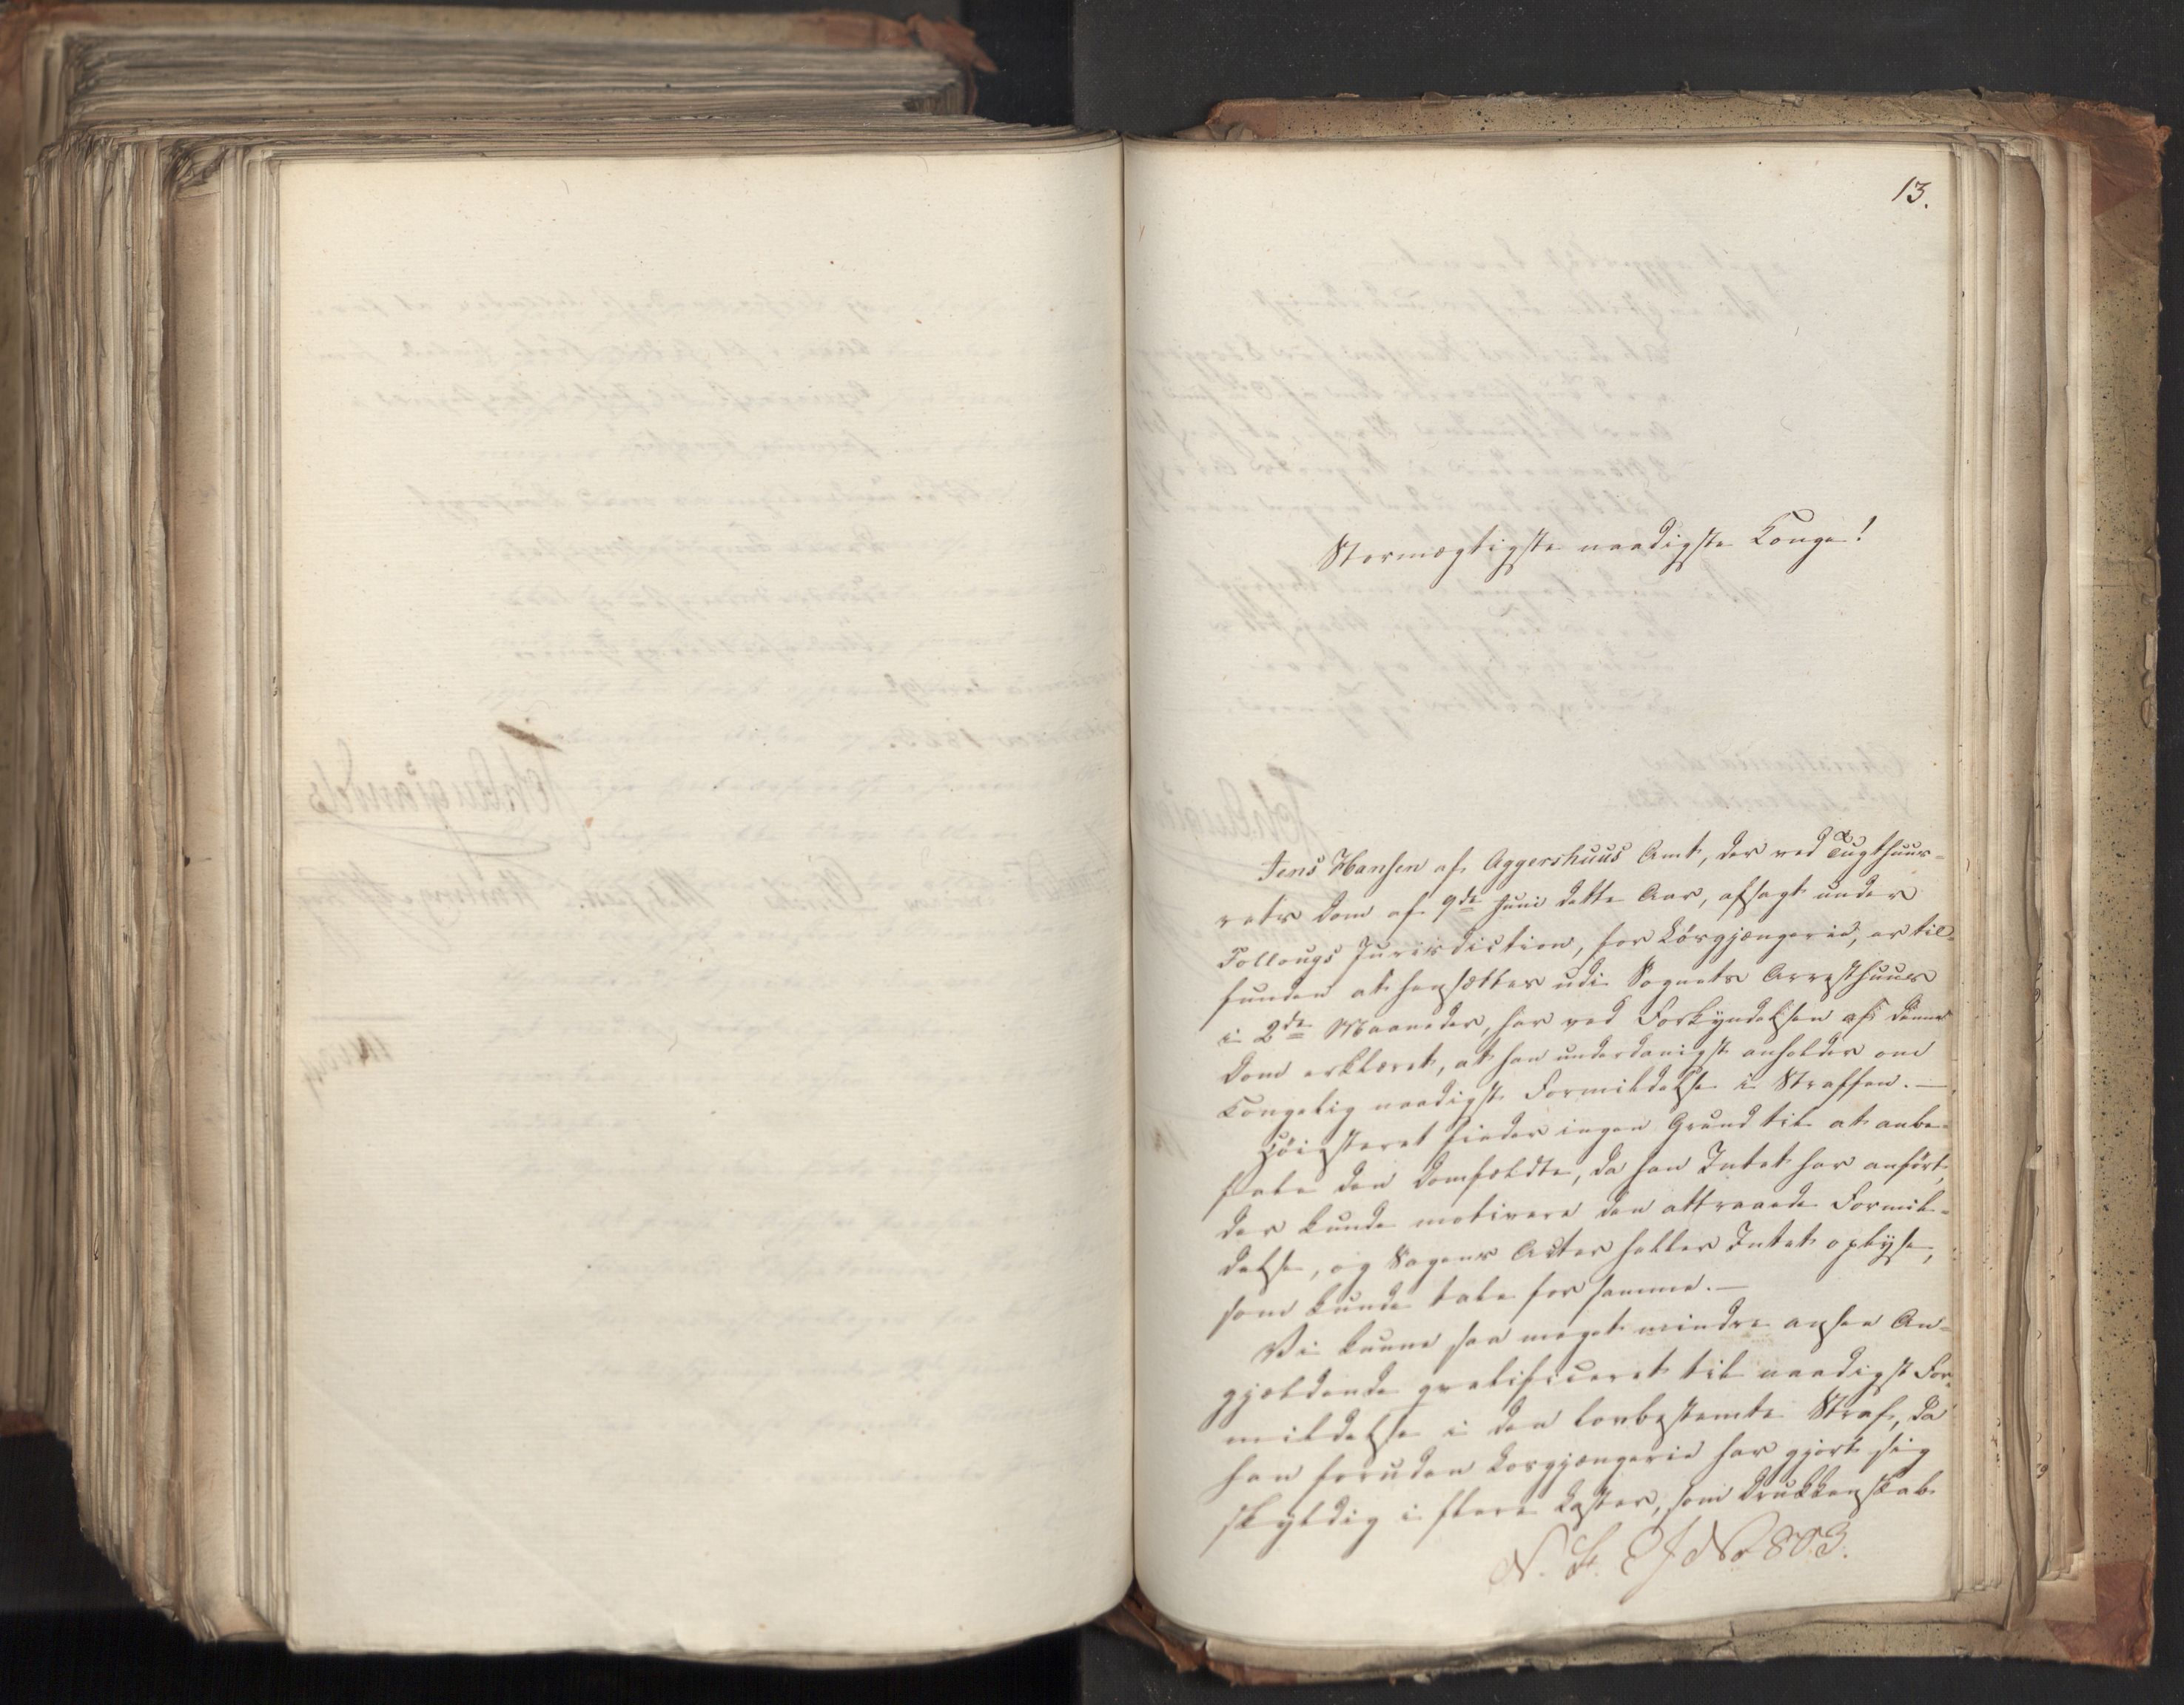 13.
Stormægtigste naadigste Konge!
Jens Hansen af Aggershuus Amt, der ved Tugthuus-
rets Dom af 9de Juni dette Aar, afsagt under
Follougs Jurisdiction, for Løsgjængerie, er til-
funden at hensættes udi Sognets Arresthuus
i 2de Maaneder, har ved Forkyndelsen af denne
Dom erklæret, at han underdanigst anholder om
Kongelig naadigste Formildelse i Straffen. —
Høiesteret finder ingen Grund til at anbe-
fale den Domfældte, da han Intet har anført,
der kunde motivere den attraaede Formil-
delse, og Sagens Acter heller Intet oplyse,
som kunde tale for samme. —
Vi kunne saa meget mindre ansee An-
gjældende qvalificeret til naadigst For-
mildelse i den lovbestemte Straf, da
han foruden Løsgjængerie har gjort sig
skyldig i flere Laster, som Drukkenskab
N. S. E J No 803.